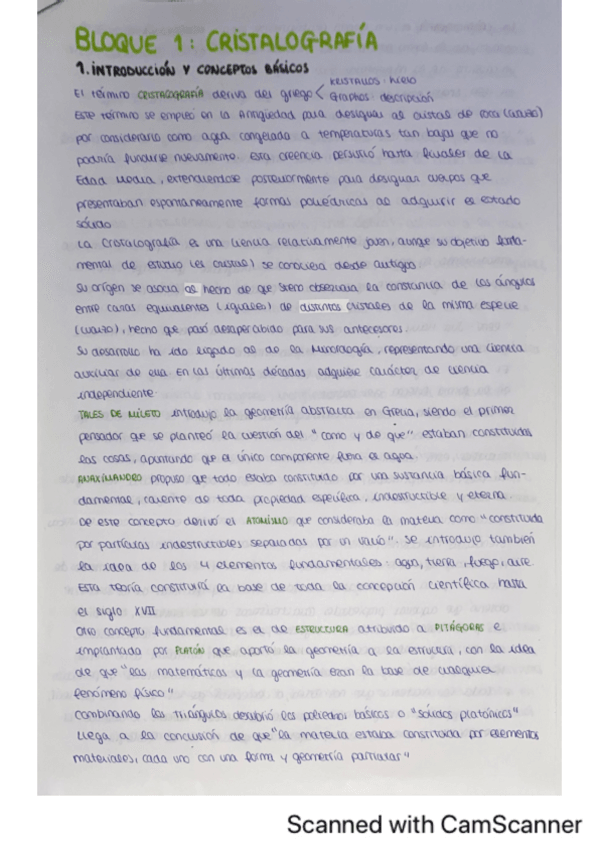 BLOQUE 1: CRISTALOGRAFÍA
1. INTRODUCCIÓN Y CONCEPTOS BÁSICOS
El término CRISTALOGRAFÍA deriva del griego < Kristallos: hielo
Graphos: descripción
Este término se empleó en la Antigüedad para designar al cristal de roca (cuarzo)
por considerarlo como agua congelada a temperaturas tan bajas que no
podría fundirse nuevamente. Esta creencia persistió hasta finales de la
Edad Media, extendiéndose posteriormente para designar cuerpos que
presentaban espontáneamente formas poliédricas al adquirir el estado
sólido
La Cristalografía es una ciencia relativamente joven, aunqe su objetivo funda-
mental de estudio (el cristal) se conociera desde antiguo
Su origen se asocia al hecho de que Steno observara la constancia de los ángulos
entre caras equivalentes (iguales) de distintos cristales de la misma especie
(cuarzo), hecho que pasó desapercibido para sus antecesores.
Su desarrollo ha ido ligado al de la Mineralogía, representando una ciencia
auxiliar de ella. En las últimas décadas adquiere carácter de ciencia
independiente.
TALES DE MILETO introdujo la geometría abstracta en Grecia, siendo el primer
pensador que se planteó la cuestión del "como y de que" estaban constituidas
las cosas, apuntando que el único componente fuera el agua.
ANAXIMANDRO propuso que todo estaba constituido por una sustancia básica fun-
damental, carente de toda propiedad específica, indestructible y eterna.
De este concepto derivó el ATOMISMO que consideraba la materia como "constituida
por partículas indestructibles separadas por un vacío". Se introdujo también
la idea de los 4 elementos fundamentales: agua, tierra, fuego, aire.
Esta teoría constituirá la base de toda la concepción científica hasta
el siglo XVII
Otro concepto fundamental es el de ESTRUCTURA atribuido a PITÁGORAS e
implantada por PLATÓN que aportó la geometría a la estructura, con la idea
de que "las matemáticas y la geometría eran la base de cualquier
fenómeno físico"
Combinando los triángulos descubrió los poliedros básicos o "sólidos platónicos"
Llega a la conclusión de que "la materia estaba constituida por elementos
materiales, cada uno con una forma y geometría particular"
Scanned with CamScanner